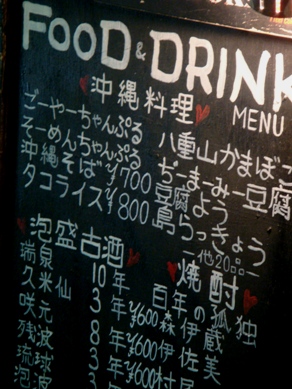 FOOD & DRINK
MENU
沖縄料理
ごーやーちゃんぷる
そーめんちゃんぷる
沖縄そば ¥700
タコライス ¥800
八重山かまぼこ
ぢーまーみー豆腐
豆腐よう
島らっきょう
他20
泡盛古酒
瑞泉 10年
久米仙 3年 ¥600
咲元 8年 ¥600
残波 3年 ¥600
琉球
泡波
焼酎
百年の孤独
森伊蔵
伊佐美
村尾